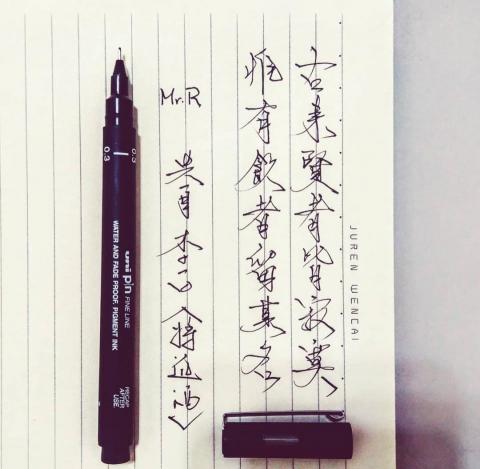 古来賢者皆寂寞
惟有飲者留其名
李白《將進酒》
Mr.R
JUREN WENCAI
0.3
0.3
uni pin FINE LINE
WATER AND FADE PROOF, PIGMENT INK
RECAP
AFTER
USE.